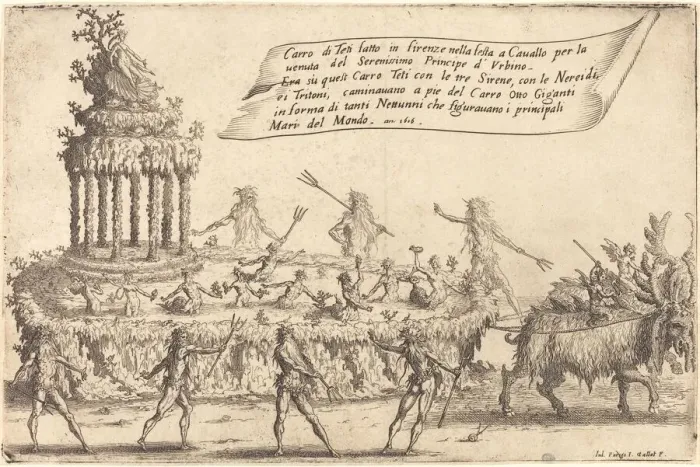 Carro di Teti fatto in firenze nella festa a Cauallo per la
uenuta del Serenissimo Principe d' Vrbino.
Era sù quest Carro Teti con le tre Sirene, con le Nereidi,
ei Tritoni, caminauano a pie del Carro Otto Giganti
in forma di tanti Nettunni che figurauano i principali
Mari del Mondo. an: 1616.
Iul. Parigi I. Callot F.